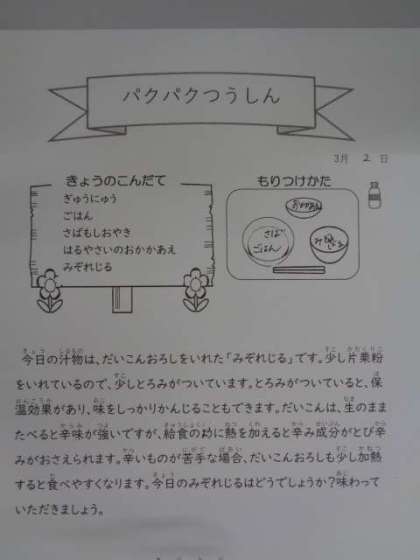 パクパクつうしん
3月 2 日
きょうのこんだて
ぎゅうにゅう
ごはん
さばもしおやき
はるやさいのおかかあえ
みぞれじる
もりつけかた
おかかあえ
さば
ごはん
みぞれじる
今日の汁物は、だいこんおろしをいれた「みぞれじる」です。少し片栗粉
をいれているので、少しとろみがついています。とろみがついていると、保
温効果があり、味をしっかりかんじることもできます。だいこんは、生のまま
たべると辛味が強いですが、給食の時に熱を加えると辛み成分がとび辛
みがおさえられます。辛いものが苦手な場合、だいこんおろしも少し加熱
すると食べやすくなります。今日のみぞれじるはどうでしょうか？味わって
いただきましょう。